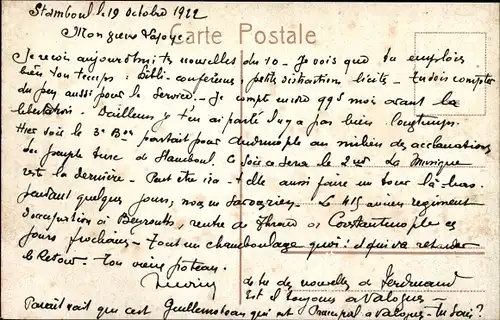 Stamboul le 19 Octobre 1922
Carte Postale
Mon vieux
Je reçois aujourd'hui tes nouvelles du 10 - Je vois que tu emploies
bien ton temps : bibli - conférences, petites distractions licites - Tu dois compter
un peu aussi pour le service. - Je compte encore 995 mois avant la
libération. D'ailleurs je t'en ai parlé il y a pas bien longtemps.
Hier soir le 3e Bon partait pour Andrinople au milieu des acclamations
du peuple turc de Stamboul. Ce soir ce sera le 2nd. La Musique
est la dernière. - Peut être ira-t-elle aussi faire un tour là-bas.
pendant quelques jours, nous - Le 415 ancien régiment
d'occupation à Beyrouth, rentre de Thrace à Constantinople ces
jours prochains - tout un chamboulage quoi ! et qui va retarder
le Retour. - Ton vieux poteau.
as tu des nouvelles de Ferdinand
Est il toujours à Valognes -
Paraît-ait que c'est qui est à Valognes - Tu sais ?